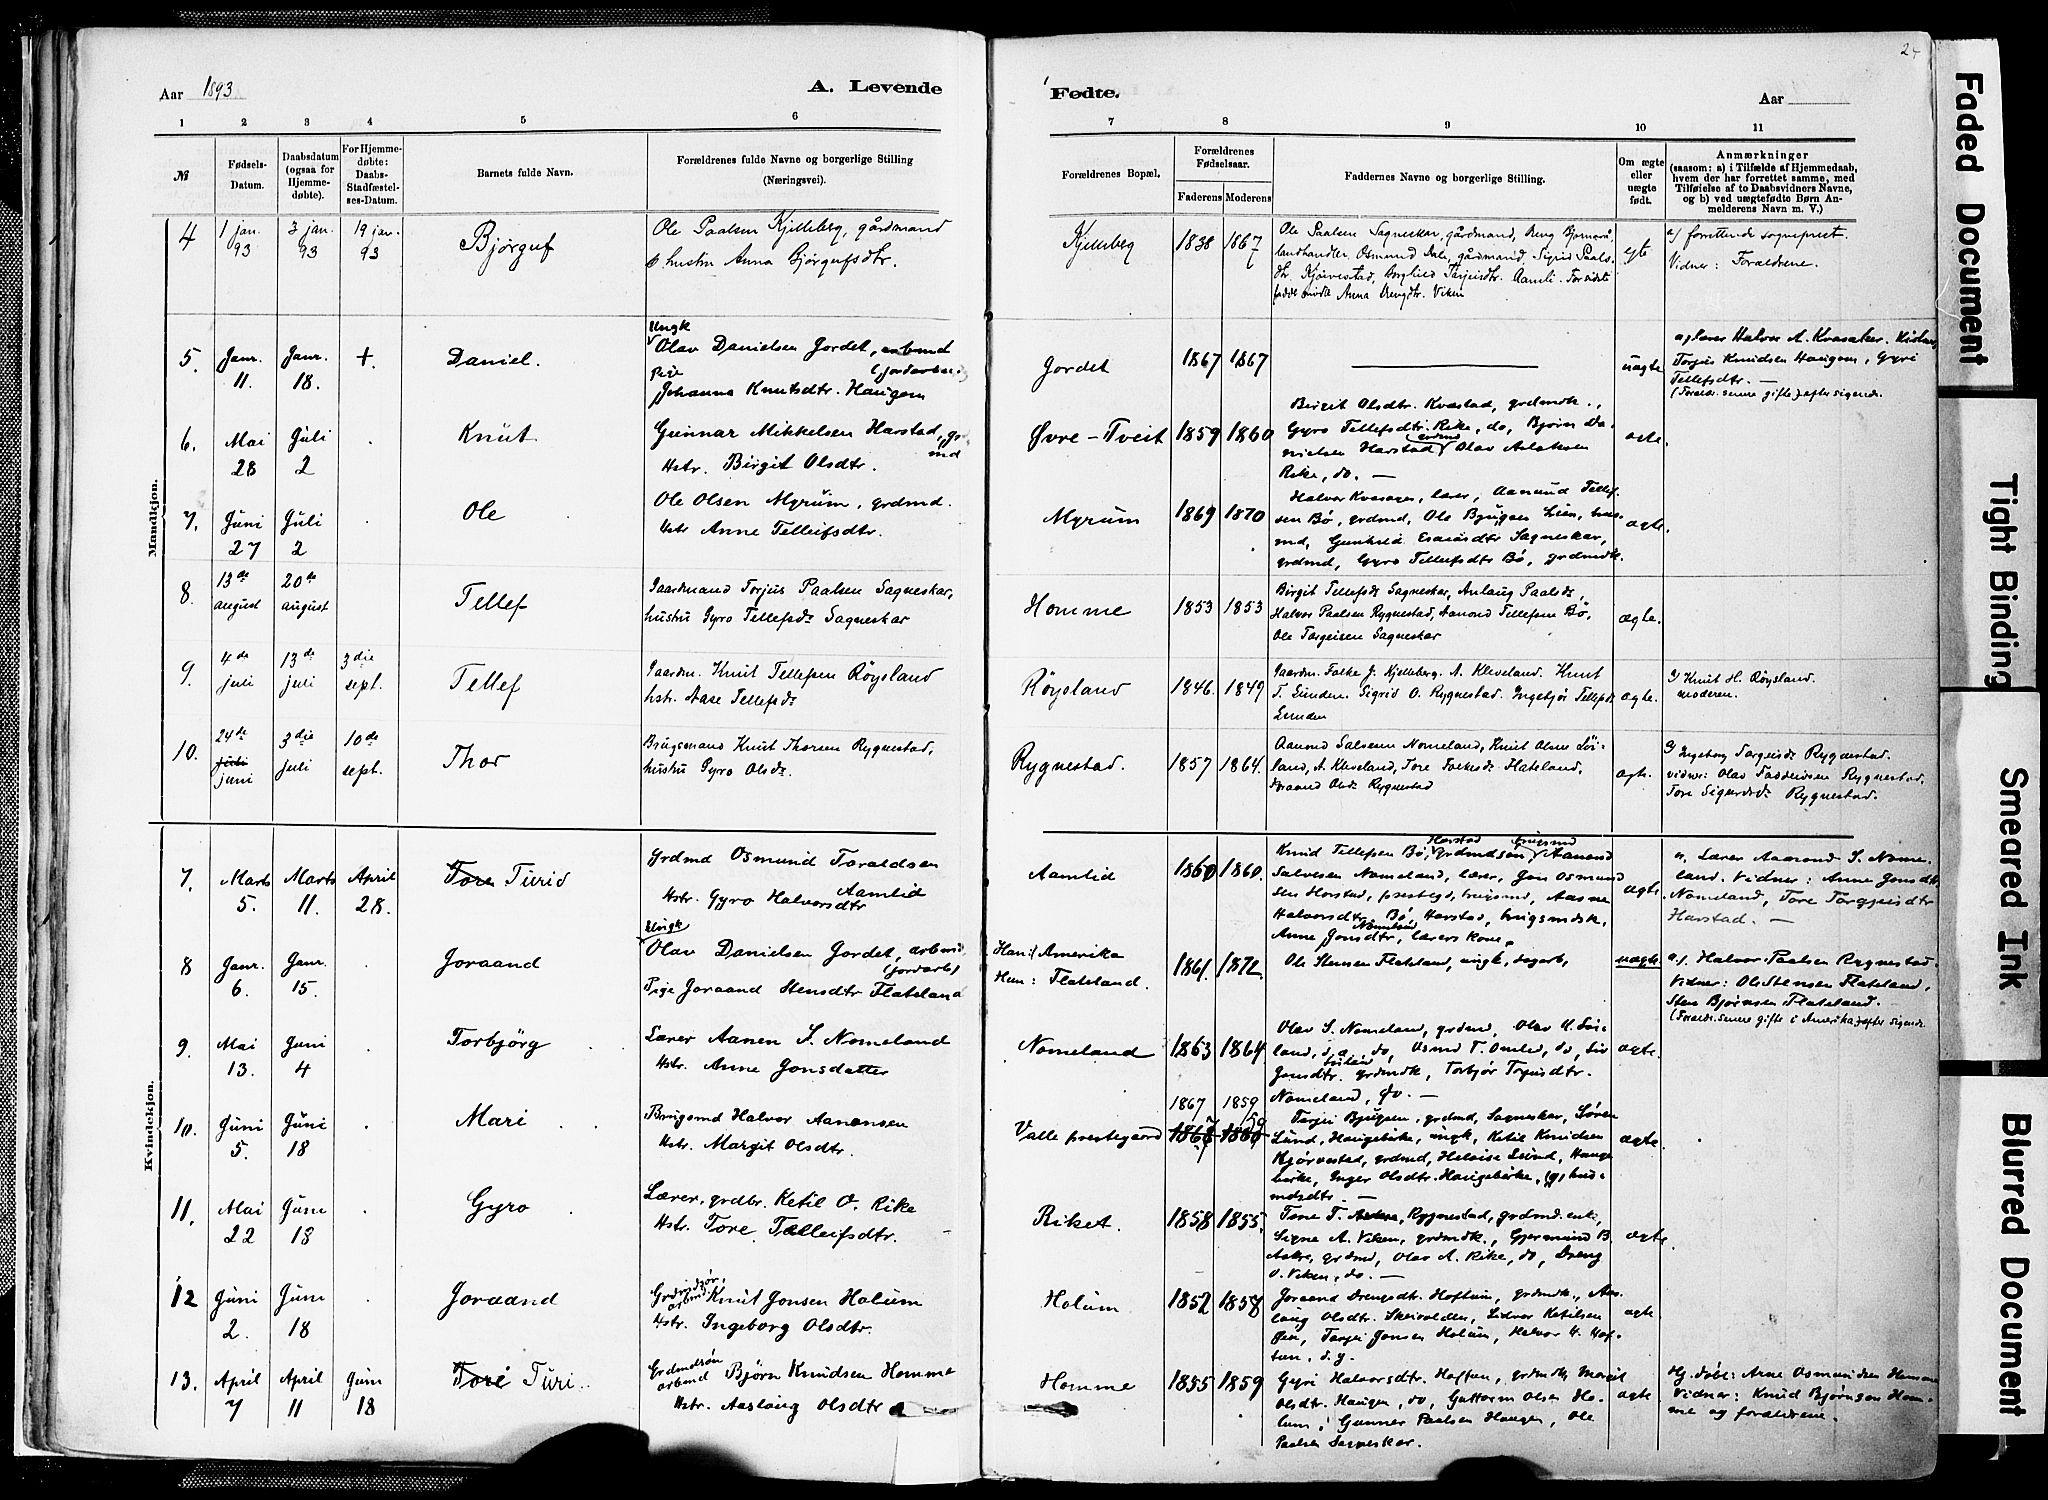 24
Aar 1893
A. Levende
Fødte.
Aar
1 2 3 4 5 6 7 8 9 10 11
№
Fødsels-
Datum.
Daabsdatum
(ogsaa for
Hjemme-
døbte).
For Hjemme-
døbte:
Daabs-
Stadfæstel-
ses-Datum.
Barnets fulde Navn.
Forældrenes fulde Navne og borgerlige Stilling
(Næringsvei).
Forældrenes Bopæl.
Forældrenes
Fødselsaar.
Faderens
Moderens
Faddernes Navne og borgerlige Stilling.
Om ægte
eller
uægte
født.
Anmærkninger
(saasom: a) i Tilfælde af Hjemmedaab,
hvem der har forrettet samme, med
Tilføielse af to Daabsvidners Navne,
og b) ved uægtefødte Børn An-
melderens Navn m. V.)
Mandkjøn.
4
1 jan.
93
3 jan.
93
19 jan.
93
Bjørguf
Ole Paalsen Kjelleberg, gårdmand
hustru Anna Bjørgufsdtr.
Kjelleberg
1838
1867
Ole Paalsen Sagneskar, gårdmand, Dreng Bjørnarå,
landhandler, Osmund Dale, gårdmand, Sigrid Paals-
dtr. Kjørvestad, Borghild Tarjeisdtr. Aamli.
Anna Drengdtr. Viken
egte
a) forrettende sogneprest.
Vidner: Forældrene.
5.
Janr.
11.
Janr.
18.
+.
Daniel.
Ungk
Olav Danielsen Jordet, arbmd
Pige
Johanna Knutsdtr. Haugen
Jordet
1867
1867
uægte
Halvor A. Kvasaker.
Torjus Knudsen Haugen, Gyri
Tellefsdtr. —
(Foræld. senere gifte) efter sigende.
6.
Mai
28
Juli
2
Knut
Gunnar Mikkelsen Harstad, gr
md
Hstr. Birgit Olsdtr.
Øvre-Tveit
1859
1860
Birgit Olsdtr. Kvestad, grdmdk.,
Gyro Tellefsdtr. Rike, do, Bjørn Da-
nielsen Harstad grdmd Olav Aslaksen
Rike, do. —
ægte.
7.
Juni
27
Juli
2
Ole
Ole Olsen Myrum, grdmd.
Hstr Anne Telleifsdtr.
Myrum
1869
1870
Halvor Kvasager, lærer, Aamund Tellef-
sen Bø, grdmd, Ole Bjugsen Lien, hus-
md, Gunhild Esaiasdtr Sagneskar,
grdmd, Gyro Tellefsdtr Bø, grdmdk.
ægte.
8.
13de
august
20de
august
Tellef
Gaardmand Torjus Paalsen Sagneskar,
hustru Gyro Tellefsdr Sagneskar
Homme
1853
1853
Birgit Tellefsdr Sagneskar, Anlaug Paalsdr,
Halvor Paalsen Rygnestad, Aanond Tellefsen Bø,
Ole Targeisen Sagneskar
ægte.
9.
4de
juli
13de
juli
3die
sept.
Tellef
Gaardm. Knut Tellefsen Røysland
hstr. Aase Tellefsdr
Røysland
1846.
1849
Gaardm. Folke J. Kjelleberg. A. Kleveland. Knut
T. Lunden. Sigrid O. Rygnestad. Ingebjør Tellefsdr
Lunden
ægte.
Knut H. Røysland.
moderen.
10.
24de
juli
juni
3die
juli
10de
sept.
Thor
Brugsmand Knut Thorsen Rygnestad,
hustru Gyro Olsdr.
Rygnestad.
1857
1864.
Aanond Salvesen Nomeland, Knut Olsen Løi-
land, A. Kleveland, Tore Folkesdr Hateland,
Joraand Olsdr Rygnestad
ægt.
Ingeborg Torgeisdr Rygnestad.
vidner: Olav Taddeivsen Rygnestad,
Tore Sigurdsdr Rygnestad.
Kvindekjøn.
7.
Marts
5.
Marts
11.
April
28.
Tore Turid
Grdmd Osmund Taraldsen
Aamlid
Hstr. Gyro Halvorsdtr
Aamlid
1860
1860.
Knud Tellefsen Bø, Harstad grdmdsøn, brugsmd Aanond
Salvesen Nomeland, lærer, Jon Osmund
sen Harstad, prestegd, brugsmd, Aasne
Halvorsdtr Bø, Harstad, brugsmdsk,
Anne Jonsdtr, Nomeland lærers kone.
ægte.
a, Lærer Aanond S. Nome-
land. Vidner: Anne Jonsdtr
Nomeland, Tore Torgjusdtr
Harstad. —
8
Janr.
6.
Janr.
15.
Joraand
Ungk
Olav Danielsen Jordet, arbmd
(jordarb)
Pige Joraand Stensdtr Flateland
Han: Amerika
Hun: Flateland.
1861.
1872.
Ole Stensen Flateland, ungk, dagarb,
uægte
a). Halvor Paalsen Rygnestad.
Vidner: Ole Stensen Flateland,
Sten Bjørnsen Flateland. —
(Foræld. senere gifte i Amerika) efter sigende
9.
Mai
13.
Juni
4
Torbjørg
Lærer Aanen S. Nomeland
Hstr. Anne Jonsdatter
Nomeland
1863
1864
Olav S. Nomeland, grdmd, Olav K. Løi-
land, do, Osmd T. Omlid, do, Liv
Jonsdtr. grdmdk, Torbjør
Nomeland, do. —
ægte.
10.
Juni
5.
Juni
18
Mari
Brugsmd Halvor Aanonsen
Hstr. Margit Olsdtr.
Valle prestegaard
1867
1859
Tarjei Bjugsen, grdmd, Sagneskar, Søren
Lund, Haugebirke, ungk, Ketil Knudsen
Kjørvestad, grdmd, Heloise Lund, Hauge
birke, Inger Olsdtr. Haugebirke,
mdsdtr. —
ægte.
11.
Mai
22
Juni
18
Gyro
Lærer, grdbr. Ketil O. Rike
Hstr. Tore Telleifsdtr.
Riket.
1858
1855.
Tone T. Rygnestad, grdmd. enke,
Signe A. Viken, grdmdk., Gjermund B.
Aakre, grdmd, Olav A. Rike, do, Dreng
O. Viken, do. —
ægte.
12
Juni
2.
Juni
18
Joraand
Grdmdsør,
arbmd Knut Jonsen Holum
Hstr. Ingeborg Olsdtr.
Holum
1852
1858
Joraand Drengsdtr. Hoftun, grdmdk., Aas-
laug Olsdtr. Skeivolden, Sidver Ketilsen
Øen, Tarjei Jonsen Holum, Halvor H. Hof-
tun, d.y.
ægte
13.
April
7
April
11
Juni
18
Tore Turi.
Grdmdsøn
arbmd Bjørn Knudsen Homme
Hstr. Aaslaug Olsdtr
Homme
1855
1859
Gyri Halvorsdtr. Hoftun, grdmdk, Margit
Olsdtr. Haugen, do, Guttorm Olsen Ho-
lum, Gunner Paalsen Haugen, Ole
Paalsen Sagneskar.
ægte
Hj. døbt: Arne Osmundsen Homme
Vidner: Knud Bjørnson Hom-
me og forældrene.
Faded Document
Tight Binding
Smeared Ink
Blurred Document